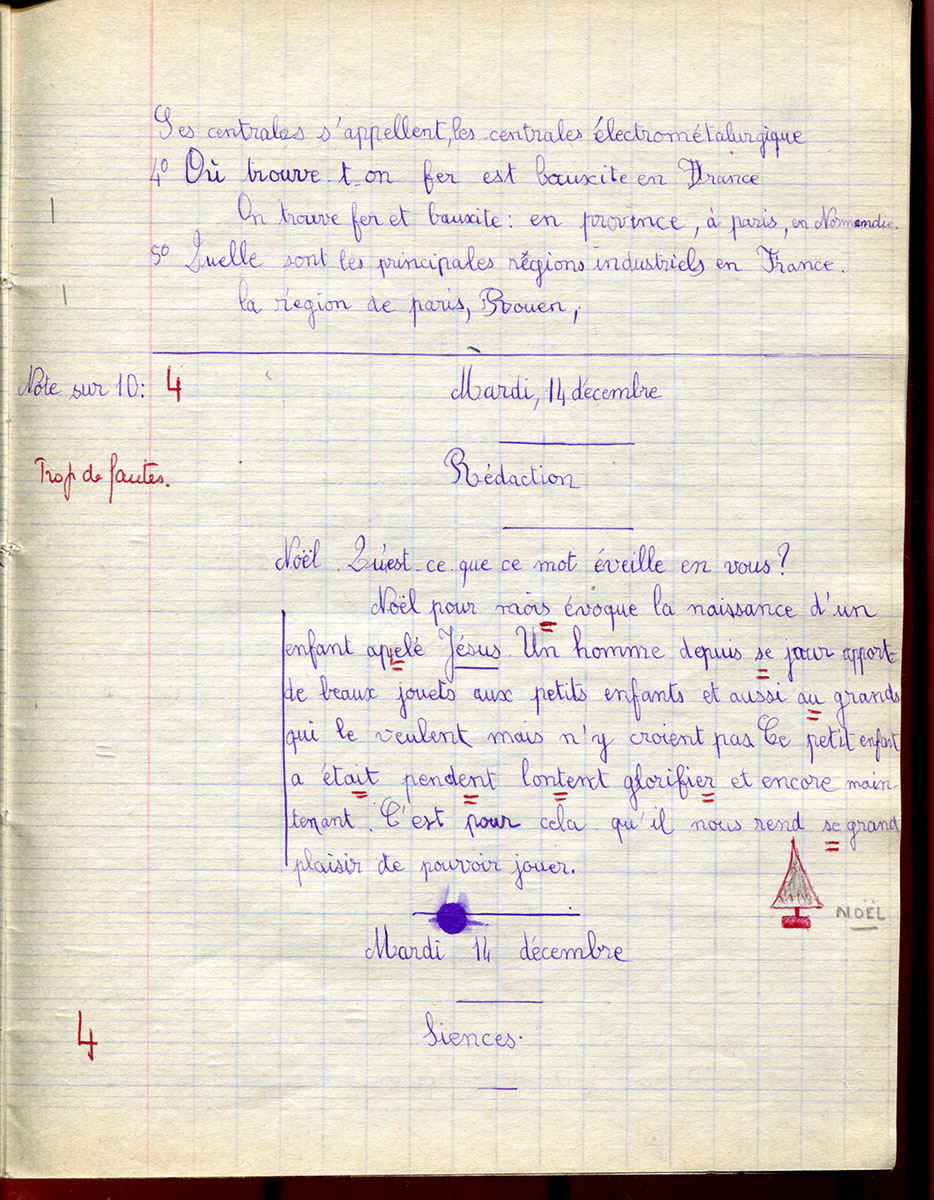 Ses centrales s'appellent, les centrales électrométalurgique
4° Où trouve-t-on fer est bauxite en France
On trouve fer et bauxite : en province, à paris, en Normandie.
5° Quelle sont les principales régions industriels en France.
la région de paris, Rouen,
Note sur 10 : 4
Mardi, 14 décembre
Trop de fautes.
Rédaction
Noël. Qu'est-ce-que ce mot éveille en vous ?
Noël pour mois évoque la naissance d'un
enfant appelé Jésus. Un homme depuis se jour apporte
de beaux jouets aux petits enfants et aussi au grands
qui le veulent mais n'y croient pas. Ce petit enfant
a était pendent lontent glorifier et encore main
tenant. C'est pour cela qu'il nous rend se grand
plaisir de pouvoir jouer.
NOËL
Mardi 14 décembre
4
Siences.